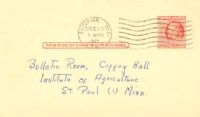 DEC 13
THIS SIDE OF CARD IS FOR ADDRESS
Bulletin Room, Coffey Hall
Institute of Agriculture
St. Paul (1) Minn.